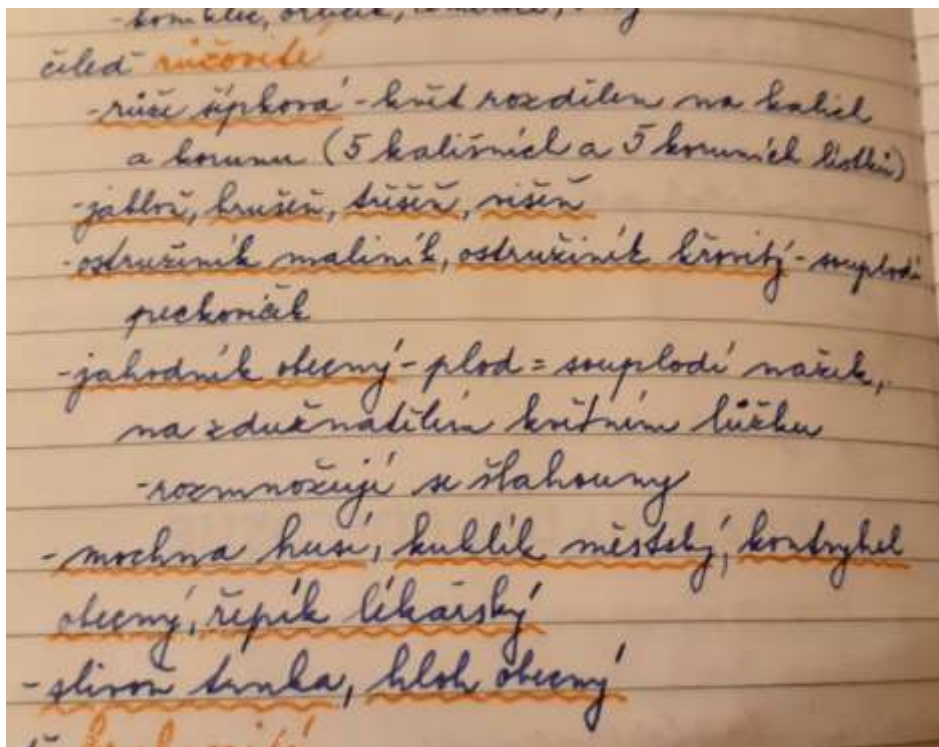 čeleď růžovité
-růže šípková - květ rozdělen na kalich
a korunu (5 kališních a 5 korunních lístků)
-jabloň, hrušeň, třešeň, višeň
-ostružiník maliník, ostružiník křovitý - souplodí
peckoviček
-jahodník obecný - plod = souplodí nažek,
na zdužnatělém květním lůžku
-rozmnožují se šlahouny
-mochna husí, kuklík městský, kontryhel
obecný, řepík lékařský
-slivoň trnka, hloh obecný